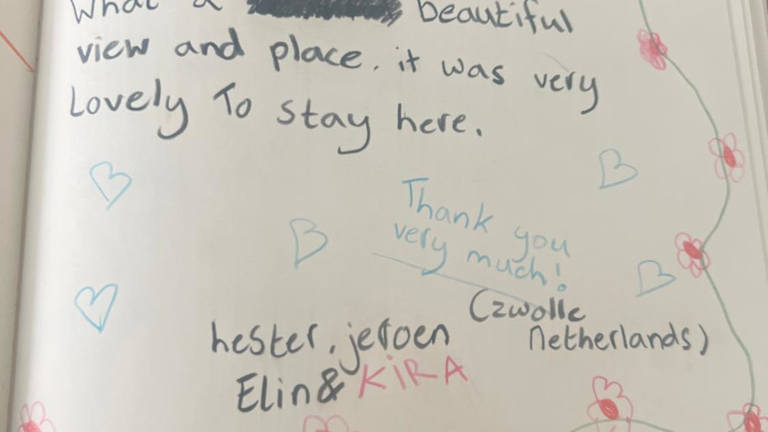 What a beautiful
view and place. it was very
Lovely To stay here.
Thank you
very much!
(zwolle
netherlands)
hester, jeroen
Elin & KiRA